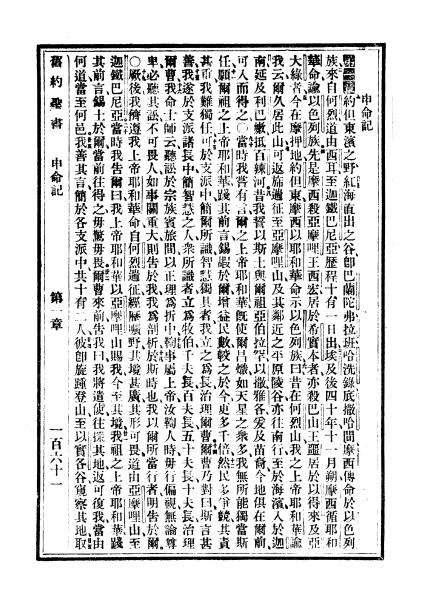 申命記
約但東濱之野紅海直出之谷卽巴蘭陀弗拉班哈洗錄底撒哈間摩西傳命於以色列
族來自何烈道由西耳至迦鐵巴尼亞歷程十有一日出埃及後四十年十一月朔摩西循耶和
華命諭以色列族先是摩西殺亞摩哩王西宏居於希實本者亦殺巴山王噩居於以得來及亞
大綠者今在摩押地約但東摩西以耶和華命示以色列族曰昔在何烈山我之上帝耶和華諭
我云爾久居此山可返旆遄征至亞摩哩山及其鄰近之平原陵谷亦往南行至於海濱入於迦
南延及利巴嫩抵百辣河昔我誓以斯土與爾祖亞伯拉罕以撒雅各爰及苗裔今地俱在爾前
可入而得之〇當時我嘗有言爾之上帝耶和華旣使爾昌熾如天星之衆多我無所能獨當斯
任願爾祖之上帝耶和華踐其前言錫嘏於爾增益民數較之於今更多千倍然民多爭競其責
其重我難獨任可於支派中簡爾所識智慧獨具者我立之爲長治理爾曹爾曹乃對曰斯言甚
善我遂於支派諸長中簡智慧之人衆所識者立爲牧伯千夫長百夫長五十夫長十夫長治理
爾曹我命士師云聽訟於宗族賓旅間以正理爲折中鞫事屬上帝汝鞫人時毋行偏視無論尊
卑必聽其訟不可畏人如事關重大則告於我我爲剖析於斯時也我以爾所當行者明告於爾
〇厥後我儕遵我上帝耶和華命自何烈遄征經歷曠野其境甚廣其形可畏道由亞摩哩山至
迦鐵巴尼亞當時我告爾曰我上帝耶和華以亞摩哩山賜我今至其境我祖之上帝耶和華踐
其前言錫土於爾當前往得之毋驚毋畏爾曹來前告我曰我將遣使往探其地返可復我當由
何道當至何邑我善其言簡於各支派中共十有二人彼卽旋踵登山至以實各谷窺察其地取
舊約聖書 申命記 第一章 一百六十一